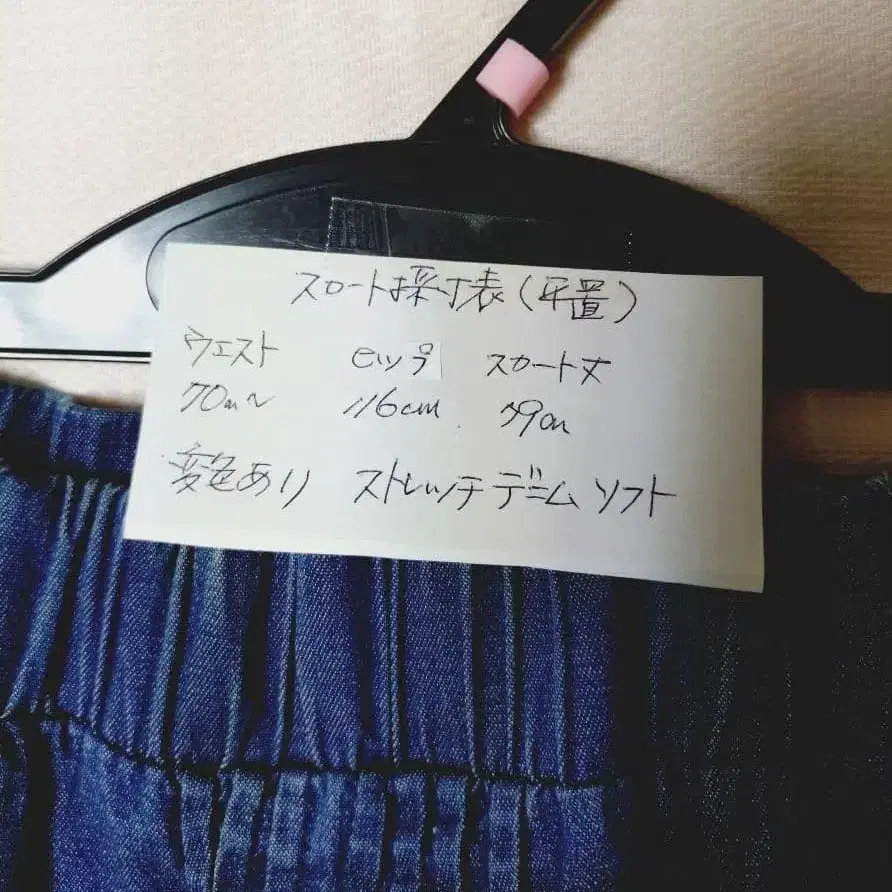 スカート採寸表(平置)
ウエスト ヒップ スカート丈
70cm〜 116cm 79cm
変色あり ストレッチデニム ソフト